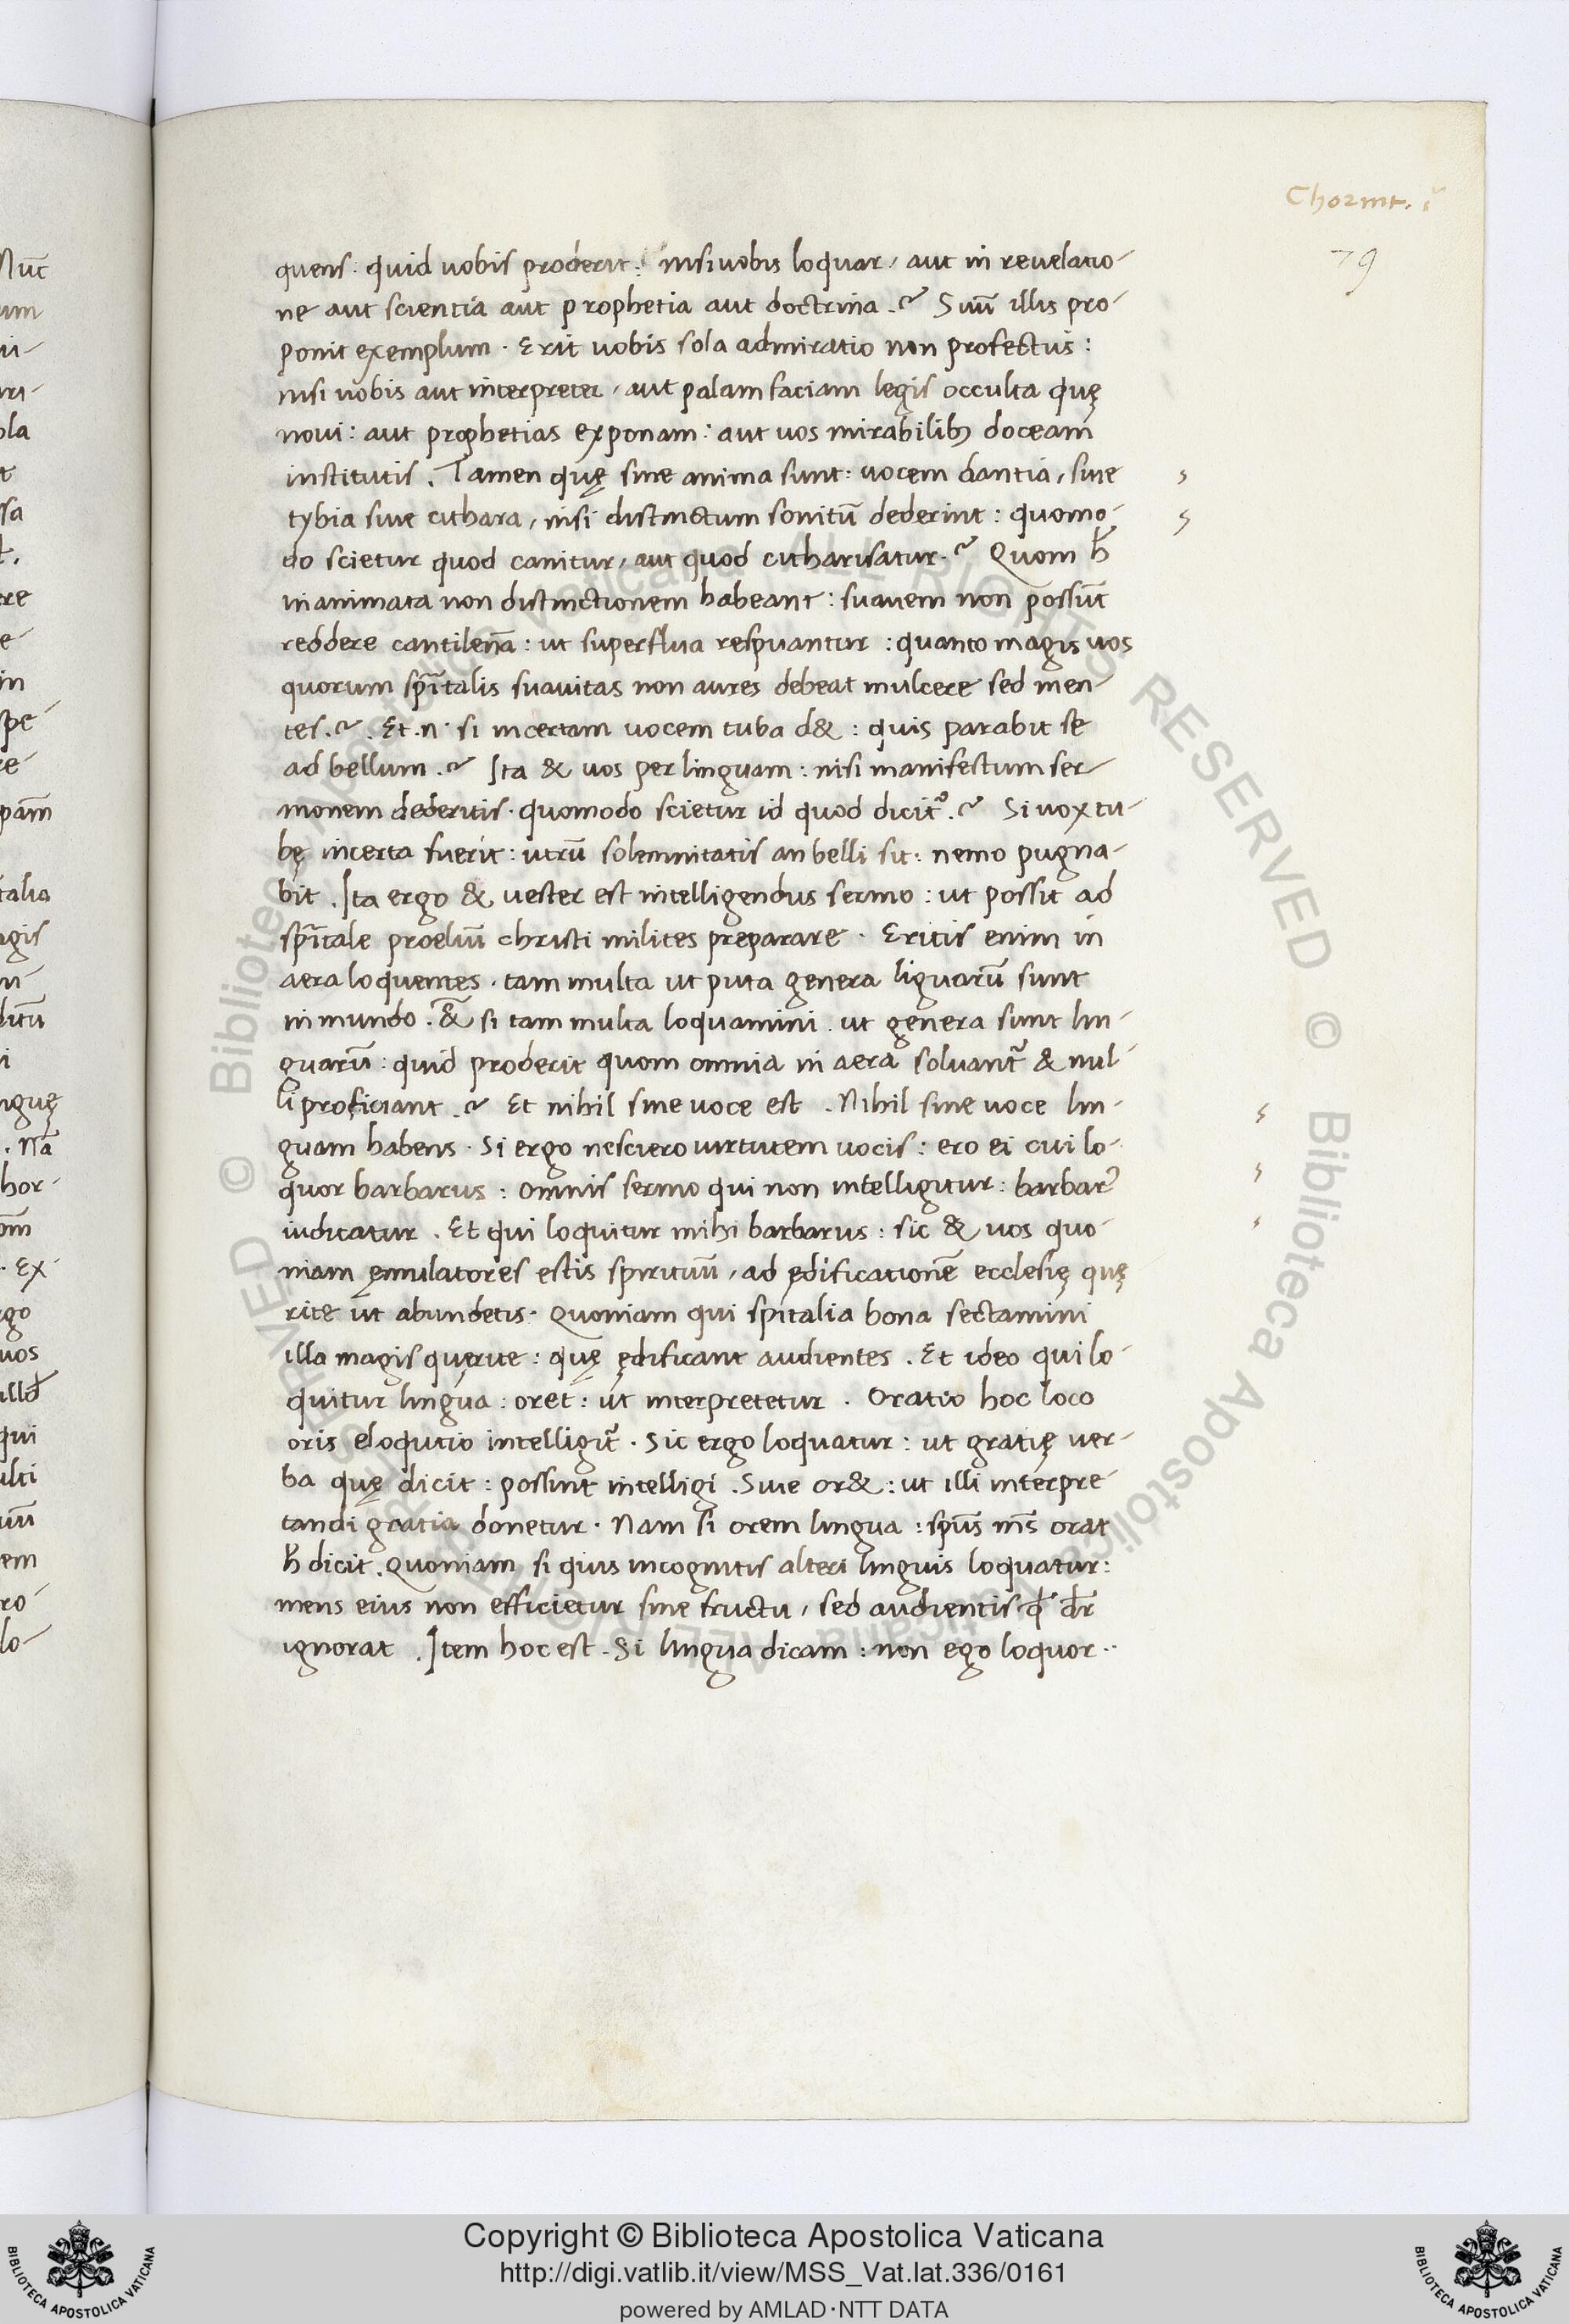 Chorint. i
79
quens: quid uobis proderit: nisi uobis loquar, aut in reuelatio-
ne aut scientia aut prophetia aut doctrina.? Suū illis pro-
ponit exemplum. Erit uobis sola admiratio non profectus:
nisi uobis aut interpreter, aut palam faciam legis occulta quę
noui: aut prophetias exponam: aut uos mirabilibꝫ doceam
institutis. Tamen quę sine anima sunt: uocem dantia, siue
tybia siue cithara, nisi distinctum sonitū dederint: quomo-
do scietur quod canitur, aut quod citharisatur.? Quom ħ
inanimata non distinctionem habeant: suauem non possūt
reddere cantilenā: ut superflua respuantur: quanto magis uos
quorum spīrtalis suauitas non aures debeat mulcere sed men-
tes.? Et.n. si incertam uocem tuba d&: quis parabit se
ad bellum.? Ita & uos per linguam: nisi manifestum ser-
monem dederitis. quomodo scietur id quod dicit᷑.? Si uox tu-
bę incerta fuerit: utrū solemnitatis an belli sit: nemo pugna-
bit. Ita ergo & uester est intelligendus sermo: ut possit ad
spīrtale proeliū christi milites preparare. Eritis enim in
aera loquentes. tam multa ut puta genera liguarū sunt
in mundo. &̄ si tam multa loquamini. ut genera sunt lin-
guarū: quid proderit quom omnia in aera soluant᷑ & nul-
li proficiant.? Et nihil sine uoce est. Nihil sine uoce lin-
guam habens. Si ergo nesciero uirtutem uocis: ero ei cui lo-
quor barbarus: Omnis sermo qui non intelligitur: barbar᷒
iudicatur. Et qui loquitur mihi barbarus: sic & uos quo-
niam ęmulatores estis spirituū, ad ędificationē ecclesię quę
rite ut abundetis. Quoniam qui spiritalia bona sectamini
illa magis quęrite: quę ędificant audientes. Et ideo qui lo-
quitur lingua: oret: ut interpretetur. Oratio hoc loco
oris eloqutio intelligit᷑. Sic ergo loquatur: ut gratię uer-
ba quę dicit: possint intelligi. Siue or&: ut illi interpre-
tandi gratia donetur. Nam si orem lingua: spūs mūs orat
ħ dicit. Quoniam si quis incognitis alteri linguis loquatur:
mens eius non efficietur sine fructu, sed audientis qđ dr̄
ignorat. Item hoc est. Si lingua dicam: non ego loquor..
Copyright © Biblioteca Apostolica Vaticana
http://digi.vatlib.it/view/MSS_Vat.lat.336/0161
powered by AMLAD·NTT DATA